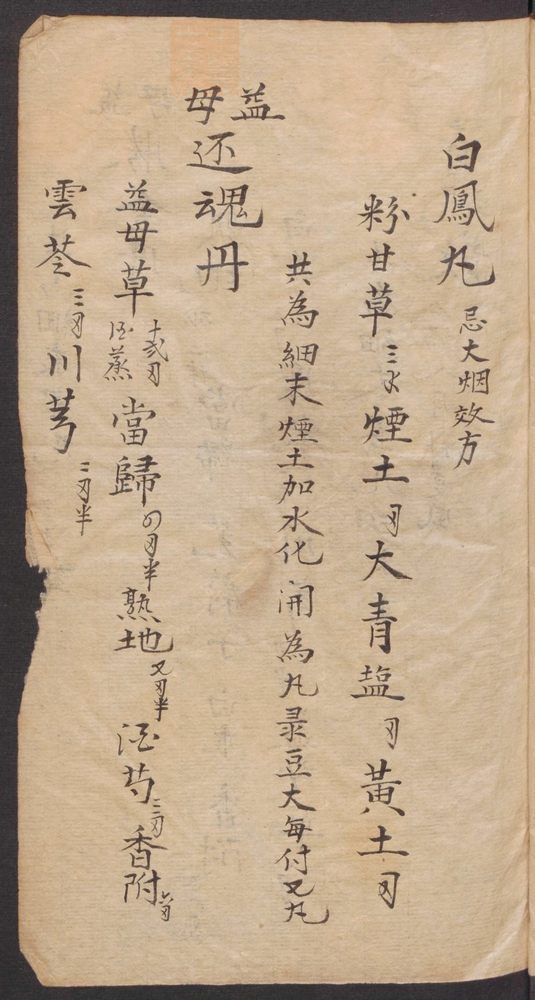 白鳳丸 忌大烟效方
粉甘草三水煙土刄大青塩刄黃土刄
共為細末煙土加水化開為丸彔豆大每付又丸
益母还魂丹
益母草十弍刄酒蒸當歸四刄半熟地又刄半酒芍三刄香附
雲苓三刄川芎二刄半